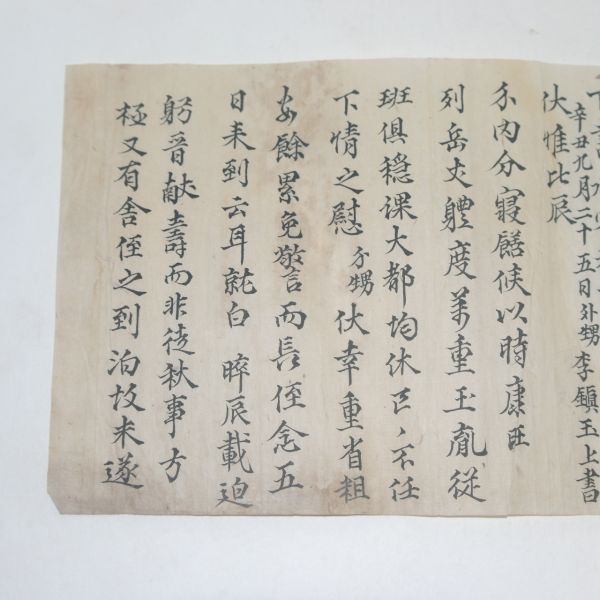 辛丑九月二十五日外甥李鎭玉上書
伏惟比辰
內分寢饍候以時康旺
列岳丈體度萬重玉胤從
班俱穩課大都均休區〻不任
下情之慰 外甥 伏幸重省粗
安餘累免警言而長侄念五
日来到云耳就白 晬辰載迫
躬晉獻壽而非徒秋事方
極又有舍侄之到泊故未遂